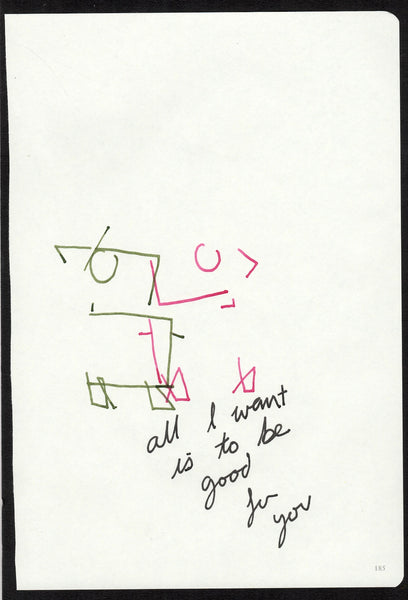 all I want
is to be
good
for
you
185